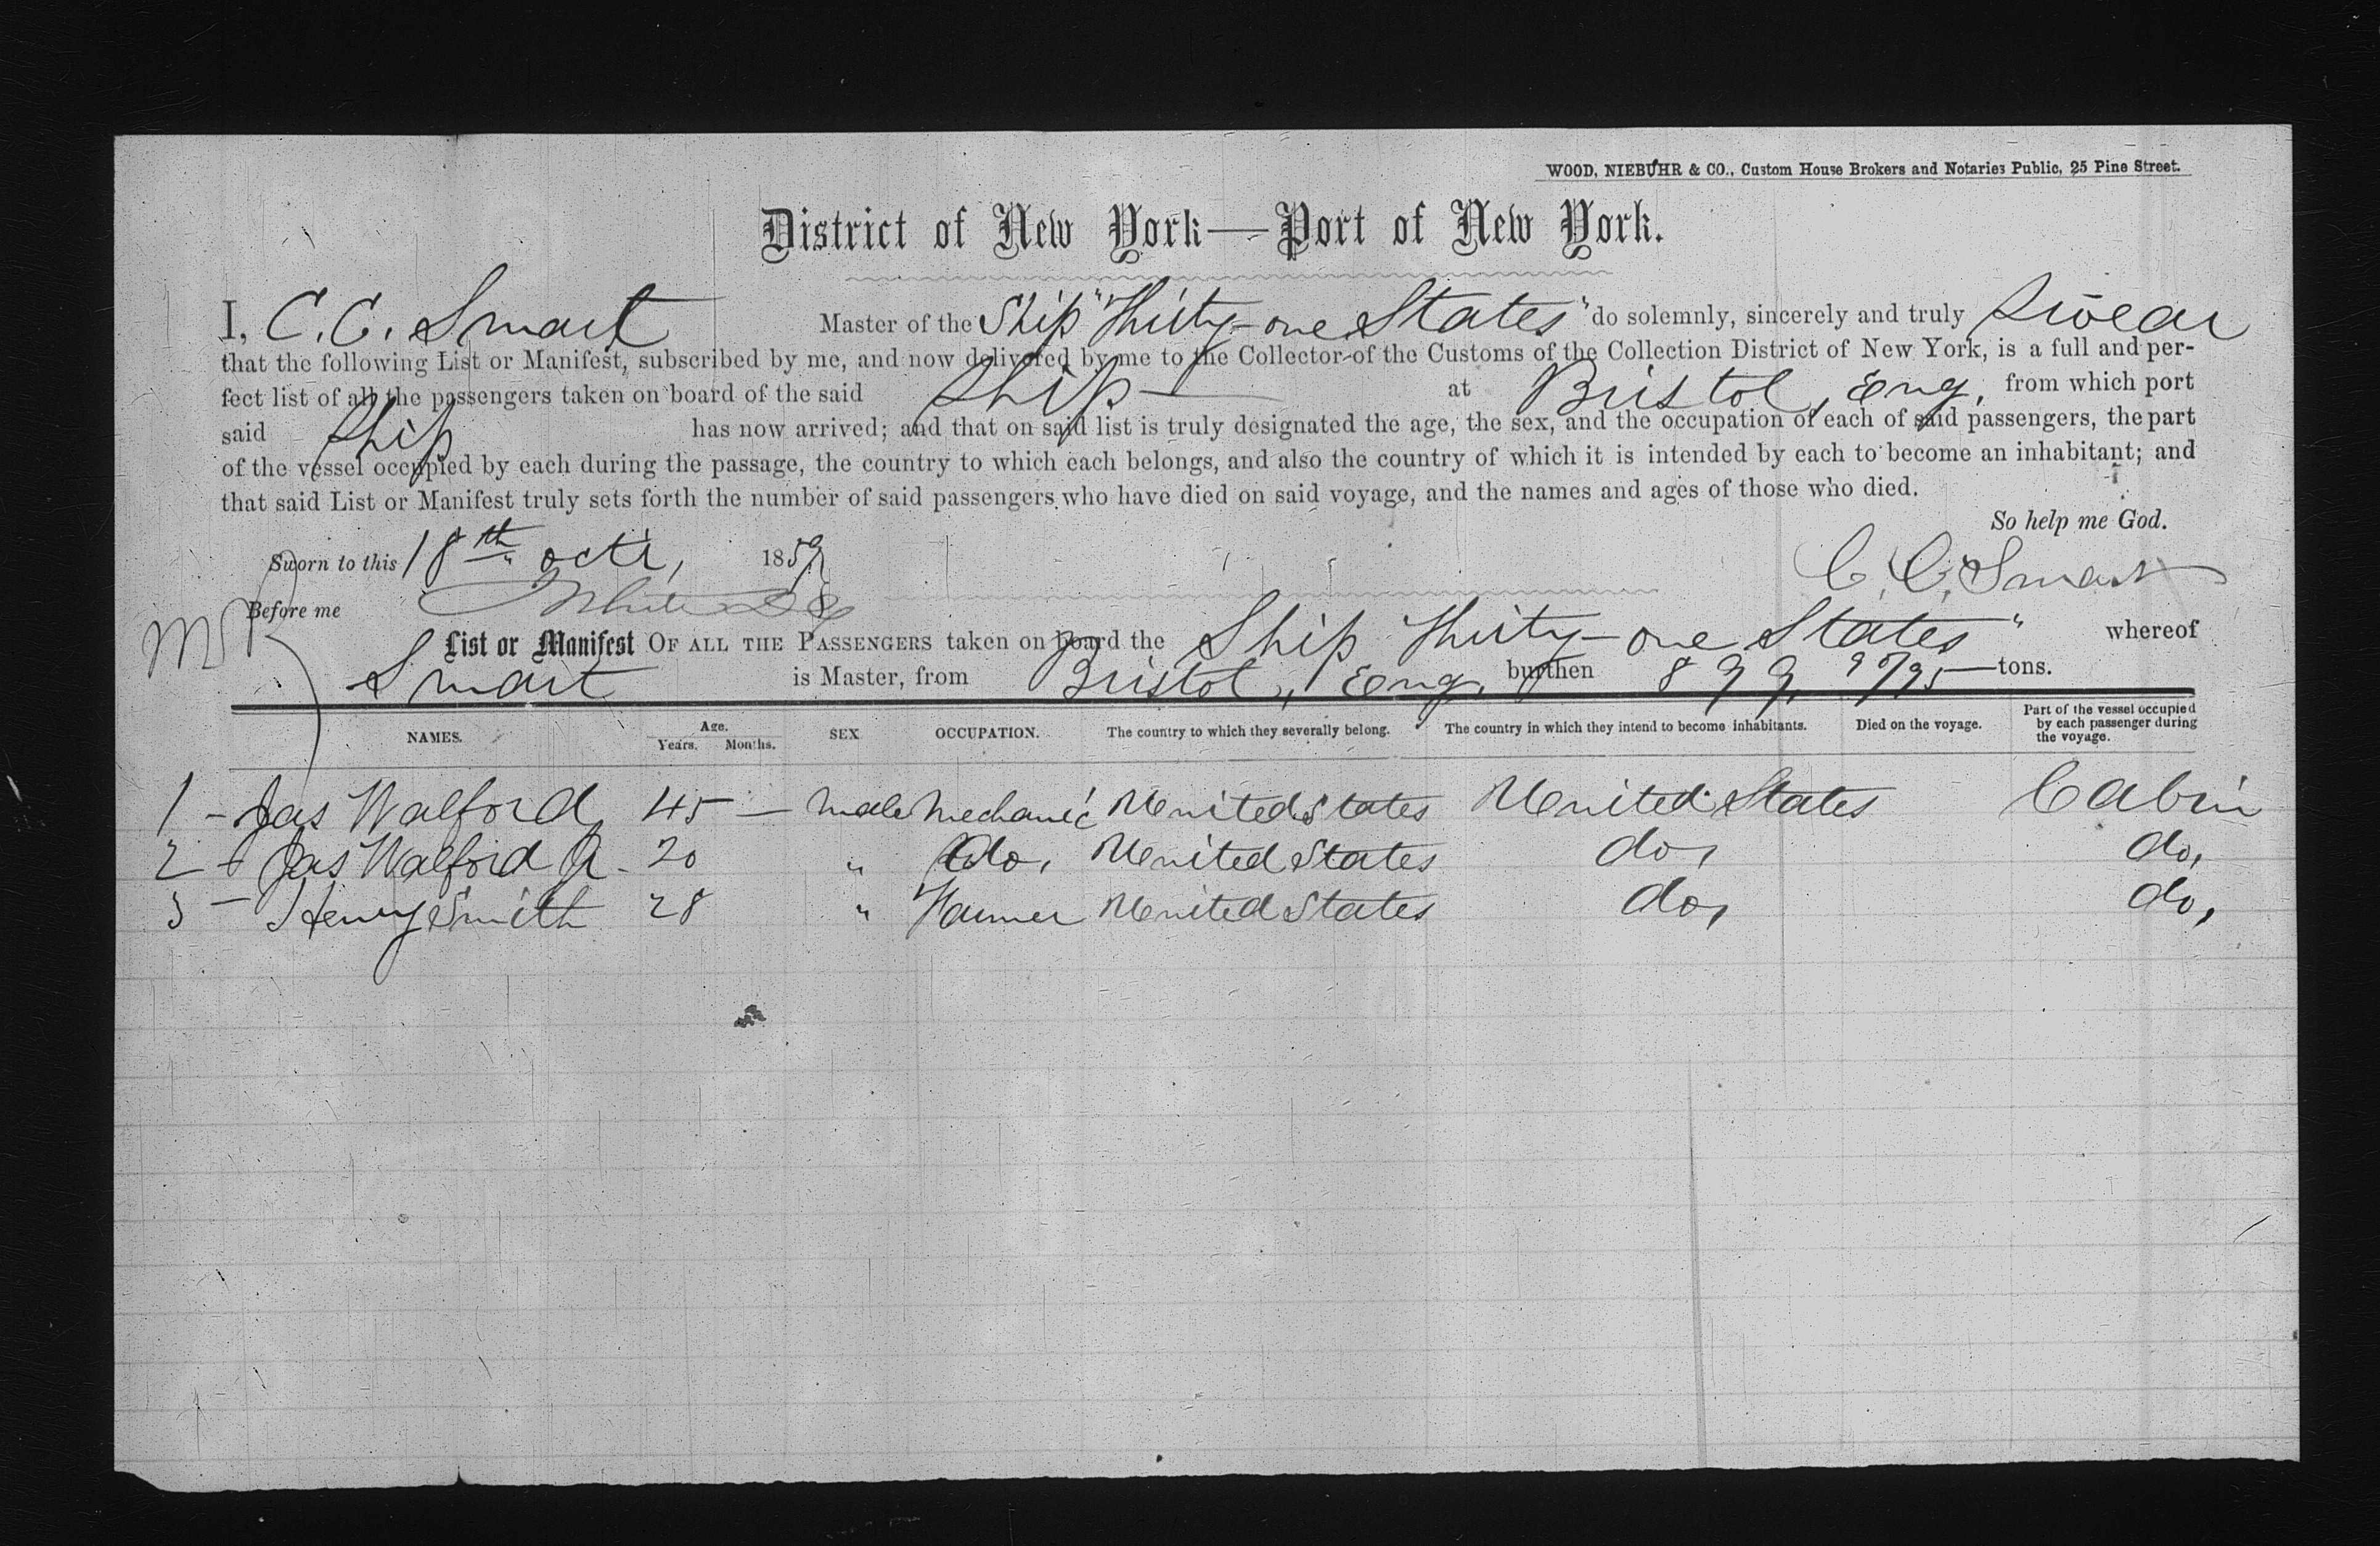 WOOD, NIEBUHR & CO., Custom House Brokers and Notaries Public, 25 Pine Street.
District of New York—Port of New York.
I, C. C. Smart Master of the Ship "Thirty-one States" do solemnly, sincerely and truly swear
that the following List or Manifest, subscribed by me, and now delivered by me to the Collector of the Customs of the Collection District of New York, is a full and per-
fect list of all the passengers taken on board of the said Ship at Bristol, Eng, from which port
said Ship has now arrived; and that on said list is truly designated the age, the sex, and the occupation of each of said passengers, the part
of the vessel occupied by each during the passage, the country to which each belongs, and also the country of which it is intended by each to become an inhabitant; and
that said List or Manifest truly sets forth the number of said passengers who have died on said voyage, and the names and ages of those who died.
So help me God.
Sworn to this 18th Octr, 1859 C. C. Smart
Before me
List or Manifest OF ALL THE PASSENGERS taken on board the Ship Thirty-one States" whereof
Smart is Master, from Bristol, Eng, burthen 899. tons.
NAMES. Age. Years. Months. SEX OCCUPATION. The country to which they severally belong. The country in which they intend to become inhabitants. Died on the voyage. Part of the vessel occupied by each passenger during the voyage.
1 - Jas Walford 45 — male mechanic United States United States Cabin
2 - Jas Walford Jr - 20 " do, United States do, do,
3 - Henry Smith 28 " Farmer United States do, do,